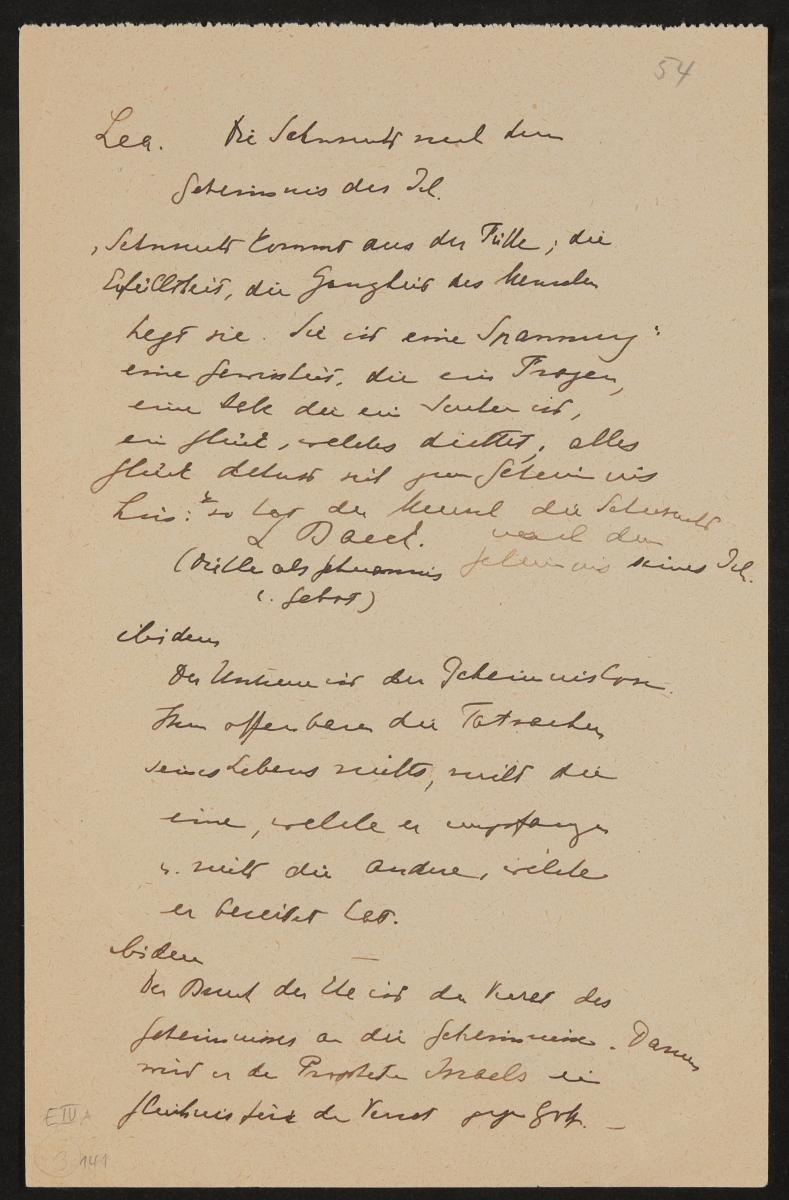 54
Lea. Die Sehnsucht nach dem
Geheimnis des Ich.
„Sehnsucht kommt aus der Fülle; die
Erfülltheit, die Ganzheit des Menschen
hegt sie. Sie ist eine Spannung:
eine Gewissheit, die ein Fragen,
eine die ein Suchen ist,
ein Glück, welches dichtet; alles
Glück dehnt sich zum Geheimnis
hin: so hat der Mensch die Sehnsucht
nach dem
Geheimnis seines Ich.
L Baeck.
(Die Ehe als Geheimnis
u. Gebot)
ibidem
Der Untreue ist der Geheimnislose.
Ihm offenbaren die Tatsachen
seines Lebens nichts, nicht die
eine, welche er empfangen
u. nicht die andere, welche
er bereitet hat.
ibidem
Der Bruch der Ehe ist der Verrat des
Geheimnisses an die Geheimnisse. Darum
wird er den Propheten Israels ein
Gleichnis für den Verrat gegen Gott. –
E IV A
3 141